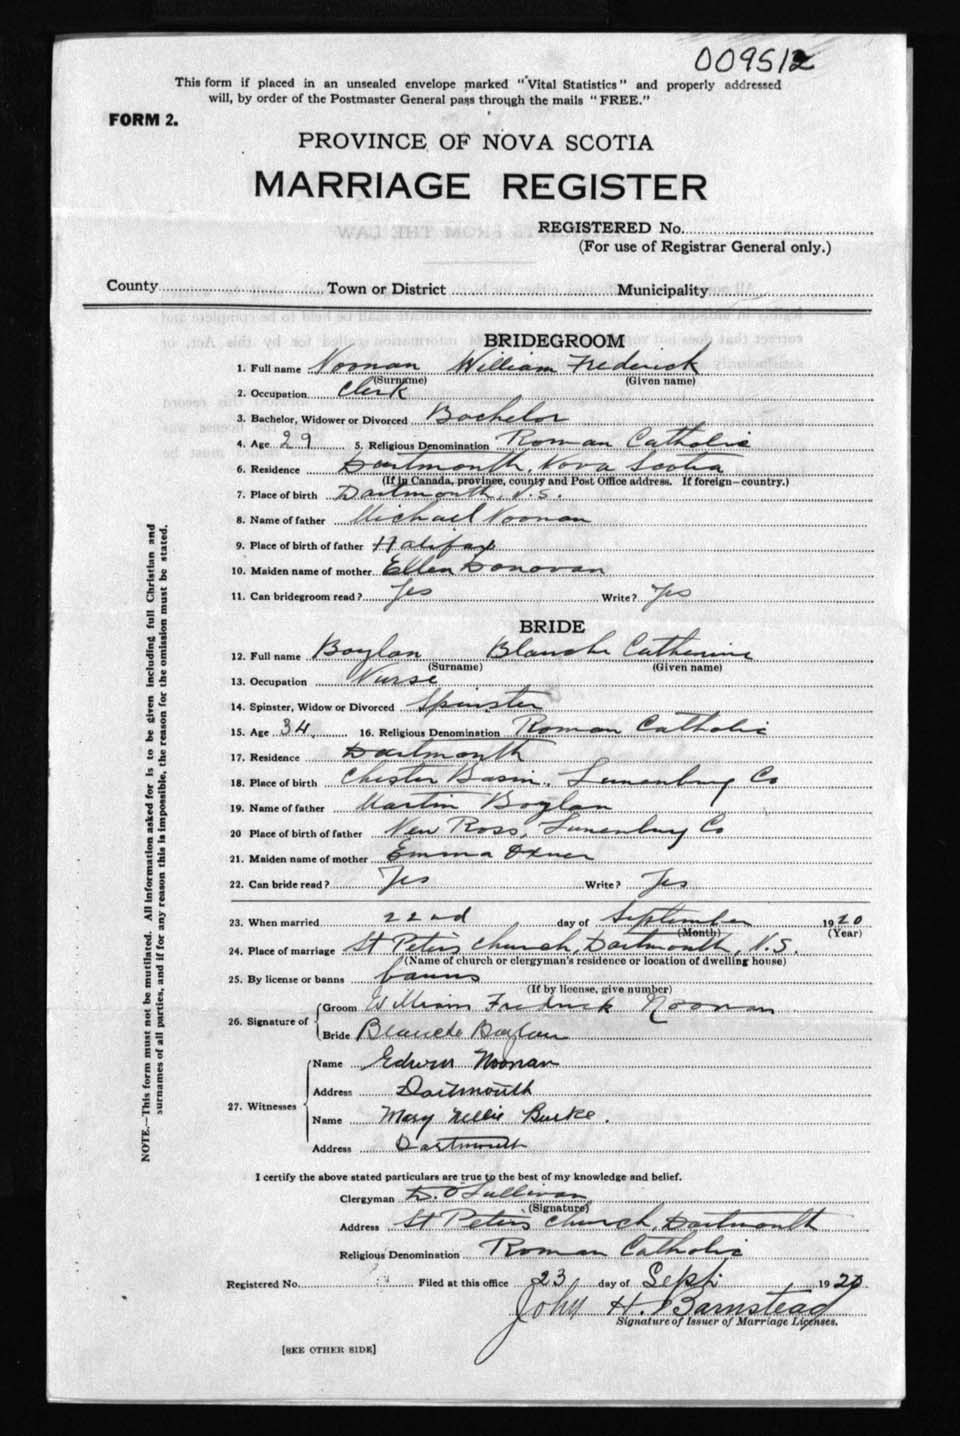 009512
This form if placed in an unsealed envelope marked "Vital Statistics" and properly addressed
will, by order of the Postmaster General pass through the mails "FREE."
FORM 2.
PROVINCE OF NOVA SCOTIA
MARRIAGE REGISTER
REGISTERED No.
(For use of Registrar General only.)
County Town or District Municipality
BRIDEGROOM
1. Full name Noonan William Frederick
(Surname) (Given name)
2. Occupation Clerk
3. Bachelor, Widower or Divorced Bachelor
4. Age 29 5. Religious Denomination Roman Catholic
6. Residence Dartmouth, Nova Scotia
(If in Canada, province, county and Post Office address. If foreign—country.)
7. Place of birth Dartmouth, N.S.
8. Name of father Michael Noonan
9. Place of birth of father Halifax
10. Maiden name of mother Ellen Donovan
11. Can bridegroom read? Yes Write? Yes
BRIDE
12. Full name Boylan Blanche Catherine
(Surname) (Given name)
13. Occupation Nurse
14. Spinster, Widow or Divorced Spinster
15. Age 34 16. Religious Denomination Roman Catholic
17. Residence Dartmouth
18. Place of birth Chester Basin, Lunenburg Co
19. Name of father Martin Boylan
20 Place of birth of father New Ross, Lunenburg Co
21. Maiden name of mother Emma Oxner
22. Can bride read? Yes Write? Yes
23. When married 22nd day of September 1920
(Month) (Year)
24. Place of marriage St Peter's Church, Dartmouth, N.S.
(Name of church or clergyman's residence or location of dwelling house)
25. By license or banns banns
(If by license, give number)
26. Signature of Groom William Fredrick Noonan
Bride Blanche Boylan
27. Witnesses
Name Edwin Noonan
Address Dartmouth
Name Mary Nellie Burke.
Address Dartmouth
I certify the above stated particulars are true to the best of my knowledge and belief.
Clergyman D. O'Sullivan
(Signature)
Address St Peter's Church, Dartmouth
Religious Denomination Roman Catholic
Registered No. Filed at this office 23 day of Sept. 1920
John H. Barnstead
Signature of Issuer of Marriage Licenses.
[SEE OTHER SIDE]
NOTE.—This form must not be mutilated. All information asked for is to be given including full Christian and
surnames of all parties, and if for any reason this is impossible, the reason for the omission must be stated.